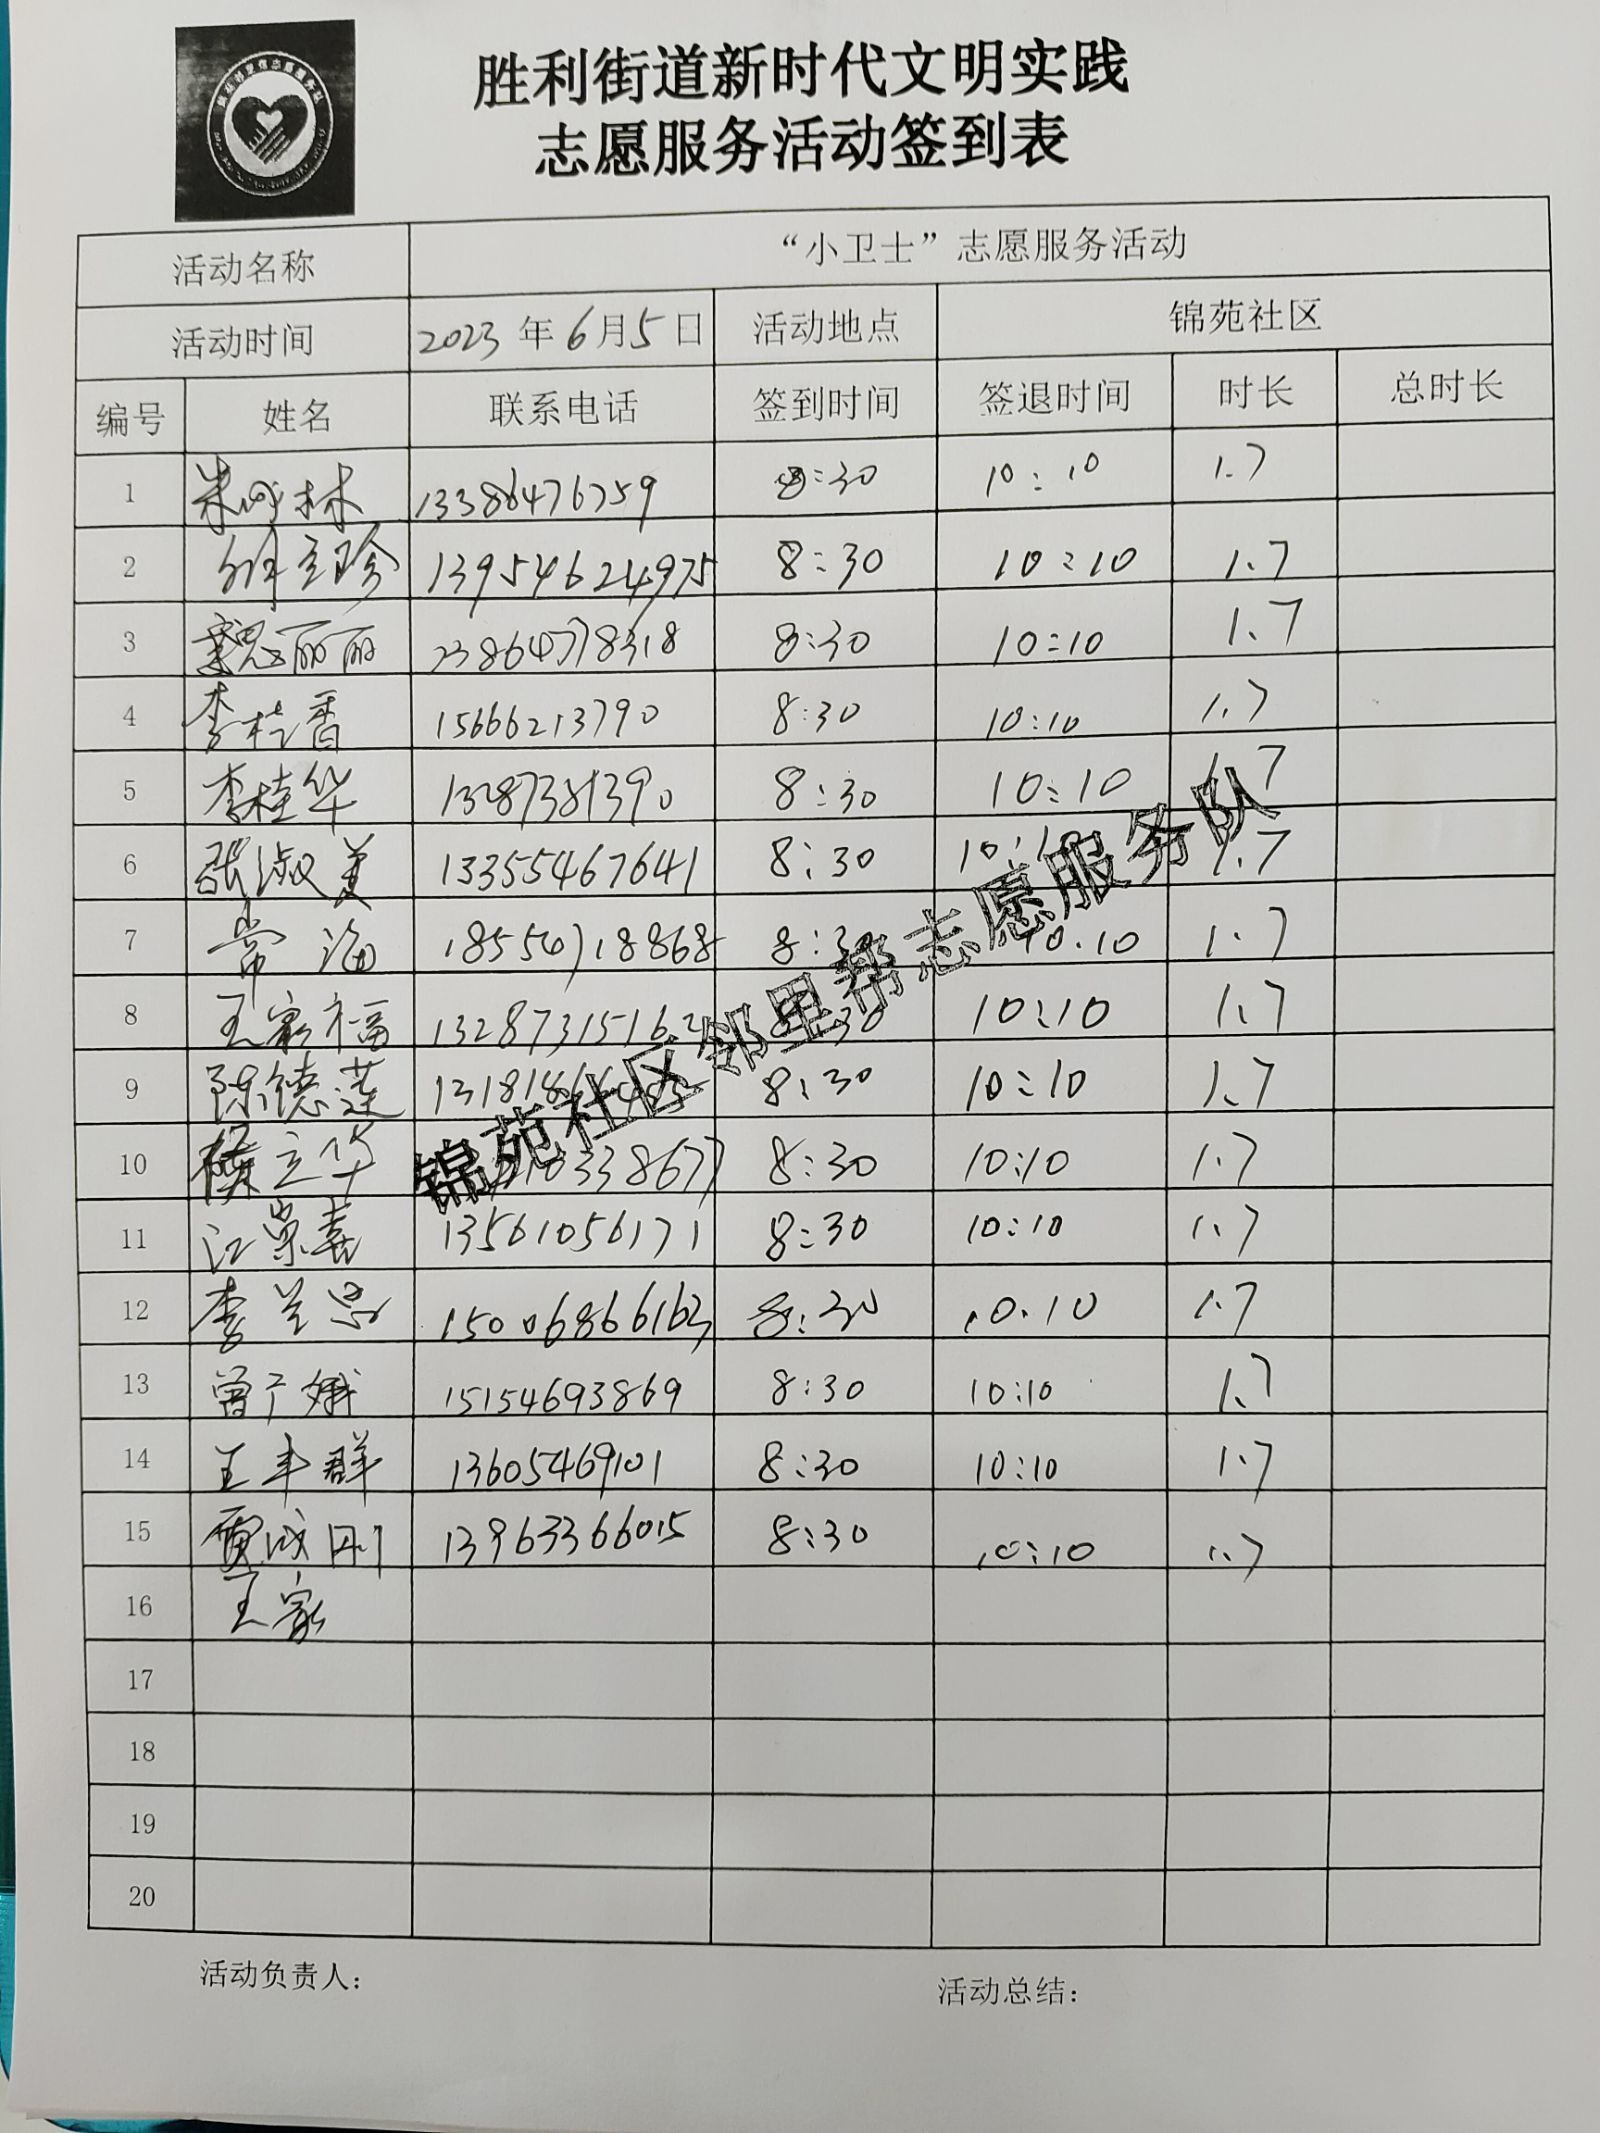 胜利街道新时代文明实践
志愿服务活动签到表
活动名称 “小卫士”志愿服务活动
活动时间 2023年6月5日 活动地点 锦苑社区
编号 姓名 联系电话 签到时间 签退时间 时长 总时长
1 13386476759 8:30 10:10 1.7
2 13954624975 8:30 10:10 1.7
3 魏丽丽 8:30 10:10 1.7
4 李桂香 15666213790 8:30 10:10 1.7
5 李桂华 13287381390 8:30 10:10 1.7
6 张淑美 13355467641 8:30 10:10 1.7
7 常海 18554718868 8:30 10:10 1.7
8 王家福 1328731516 8:30 10:10 1.7
9 陈德莲 8:30 10:10 1.7
10 8:30 10:10 1.7
11 江崇喜 13561056171 8:30 10:10 1.7
12 李兰忠 15006866163 8:30 10:10 1.7
13 曾广娥 15154693869 8:30 10:10 1.7
14 王丰群 13605469101 8:30 10:10 1.7
15 贾成刚 13963366015 8:30 10:10 1.7
16 王家
17
18
19
20
锦苑社区邻里帮志愿服务队
活动负责人： 活动总结：